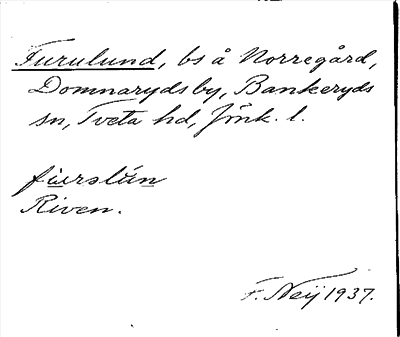 Furulund, bs å Norregård,
Domnaryds by, Bankeryds
sn, Tveta hd, Jönk. l.
fu̲rslún̲
Riven.
F. Neij 1937.